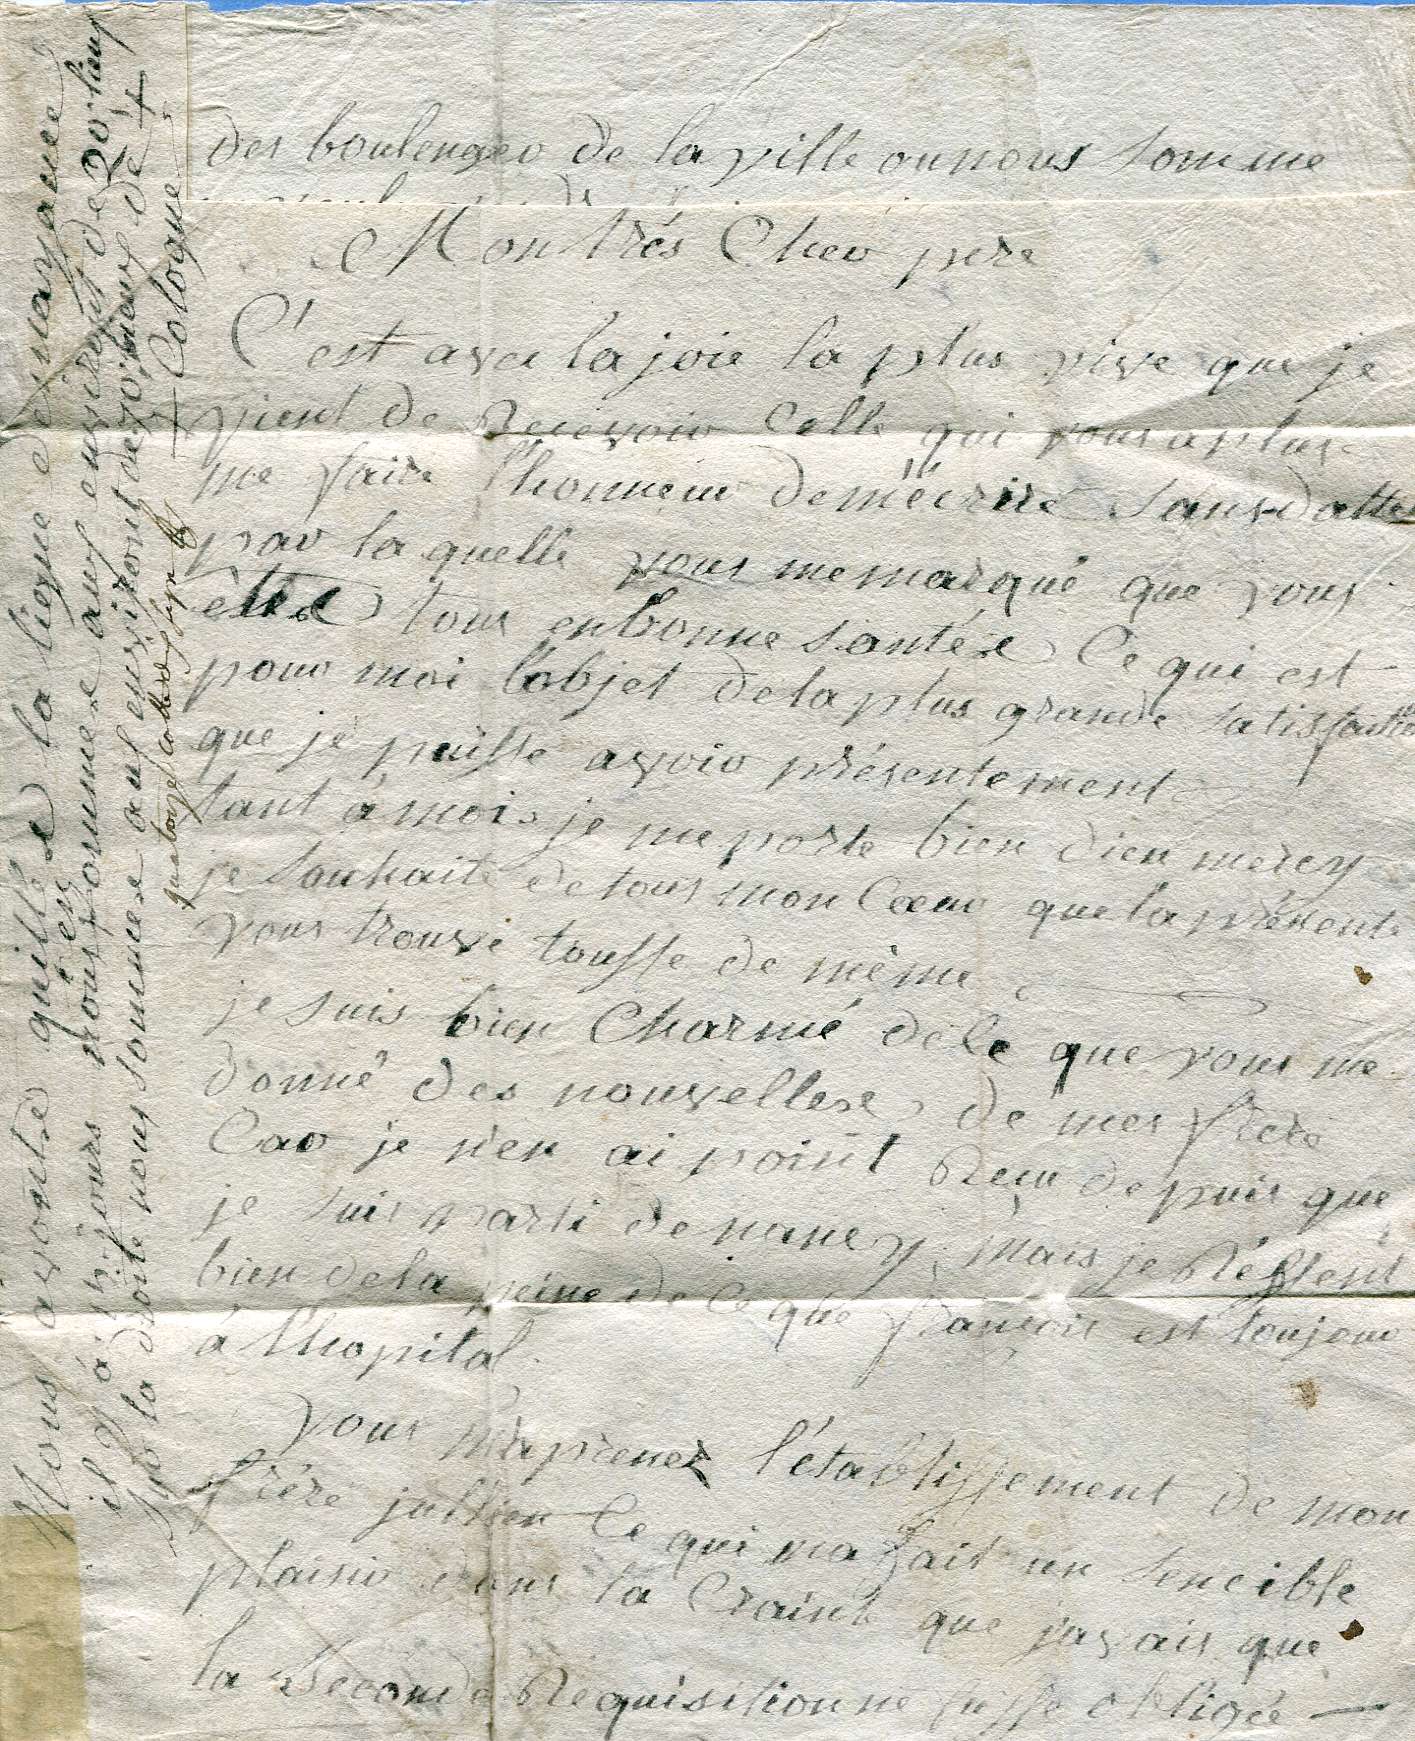 des boulenger de la ville ou nous somme
Mon très Cher pere
C'est avec la joie la plus vive que je
vient de Recevoir Celle qui vous a plus
me faire l'honneur de m'écrire Sans datte
par la quelle vous me marqué que vous
ette tous en bonne santée Ce qui est
pour moi l'objet de la plus grande satisfaction
que je puisse avoir présentement
tant à mois je me porte bien dieu mercy
je souhaite de tous mon Cœur que la présente
vous trouve tousse de même
je suis bien Charmé de Ce que vous me
donné des nouvellese de mes frere
Car je n'en ai point Reçu depuis que
je suis parti de nancy, mais je Réssent
bien de la peine de Ce que françois est toujour
à l'hopital.
vous m'aprenez l'établissement de mon
frére jullien Ce qui ma fait un sencible
plaisir dans la Craint que javais que
la Seconde Réquisition ne fusse obligée
Nous avons quillé la ligne de mayance
il y à 15 jours nous sommes aux environt de 20 lieux
Sur la droite nous sommes aux environt de 30 lieux de +
+ Cologne